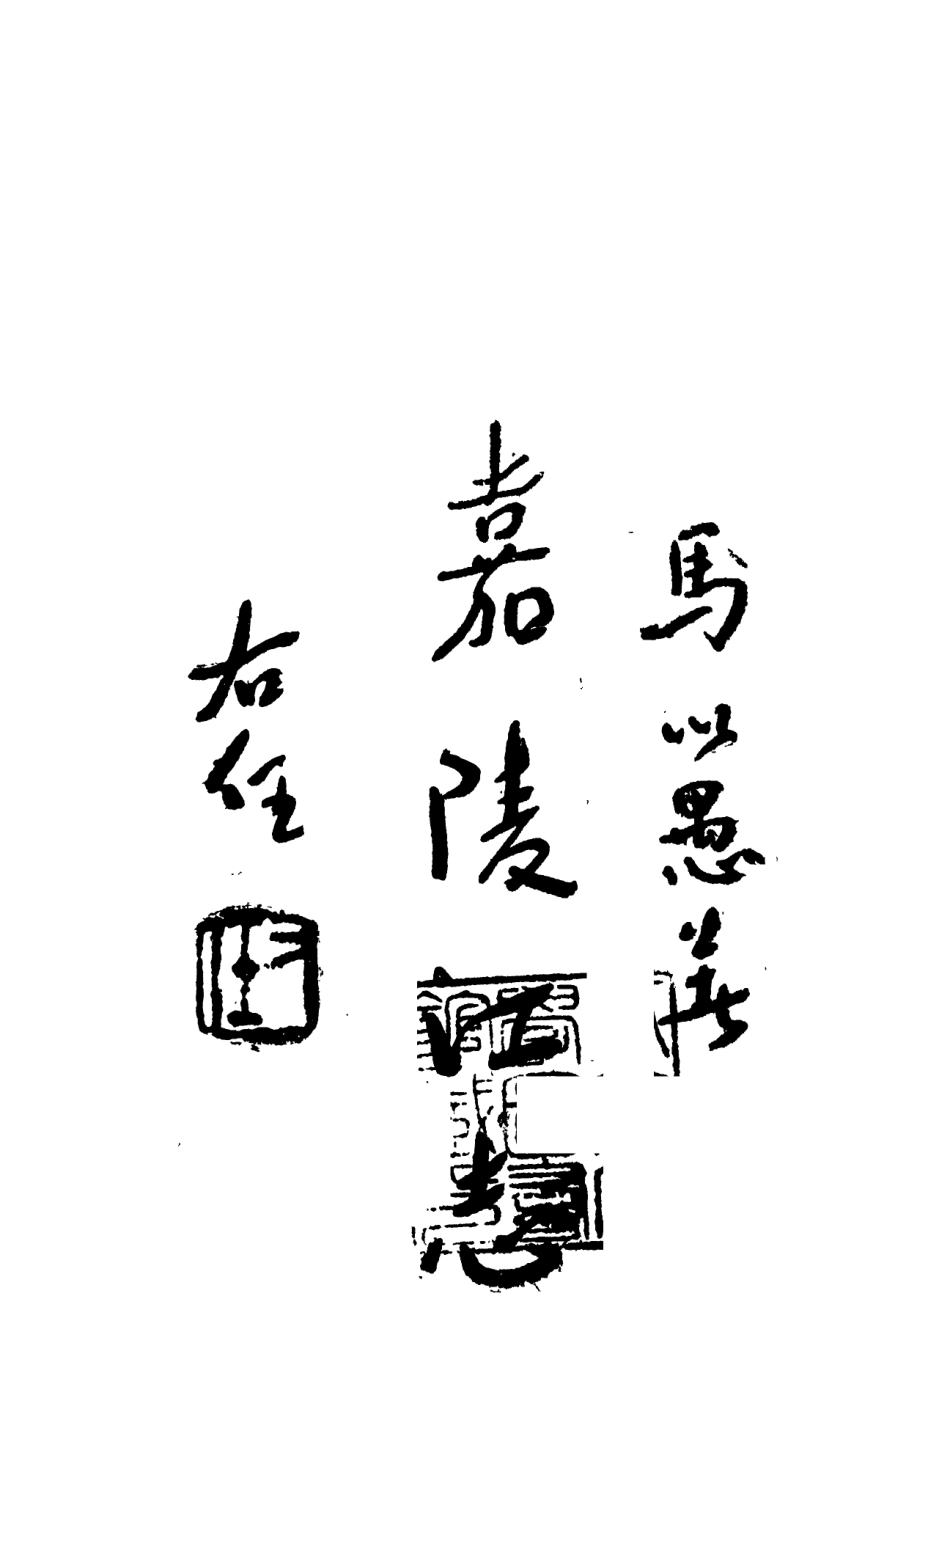 馬以愚著
嘉陵江志
右任